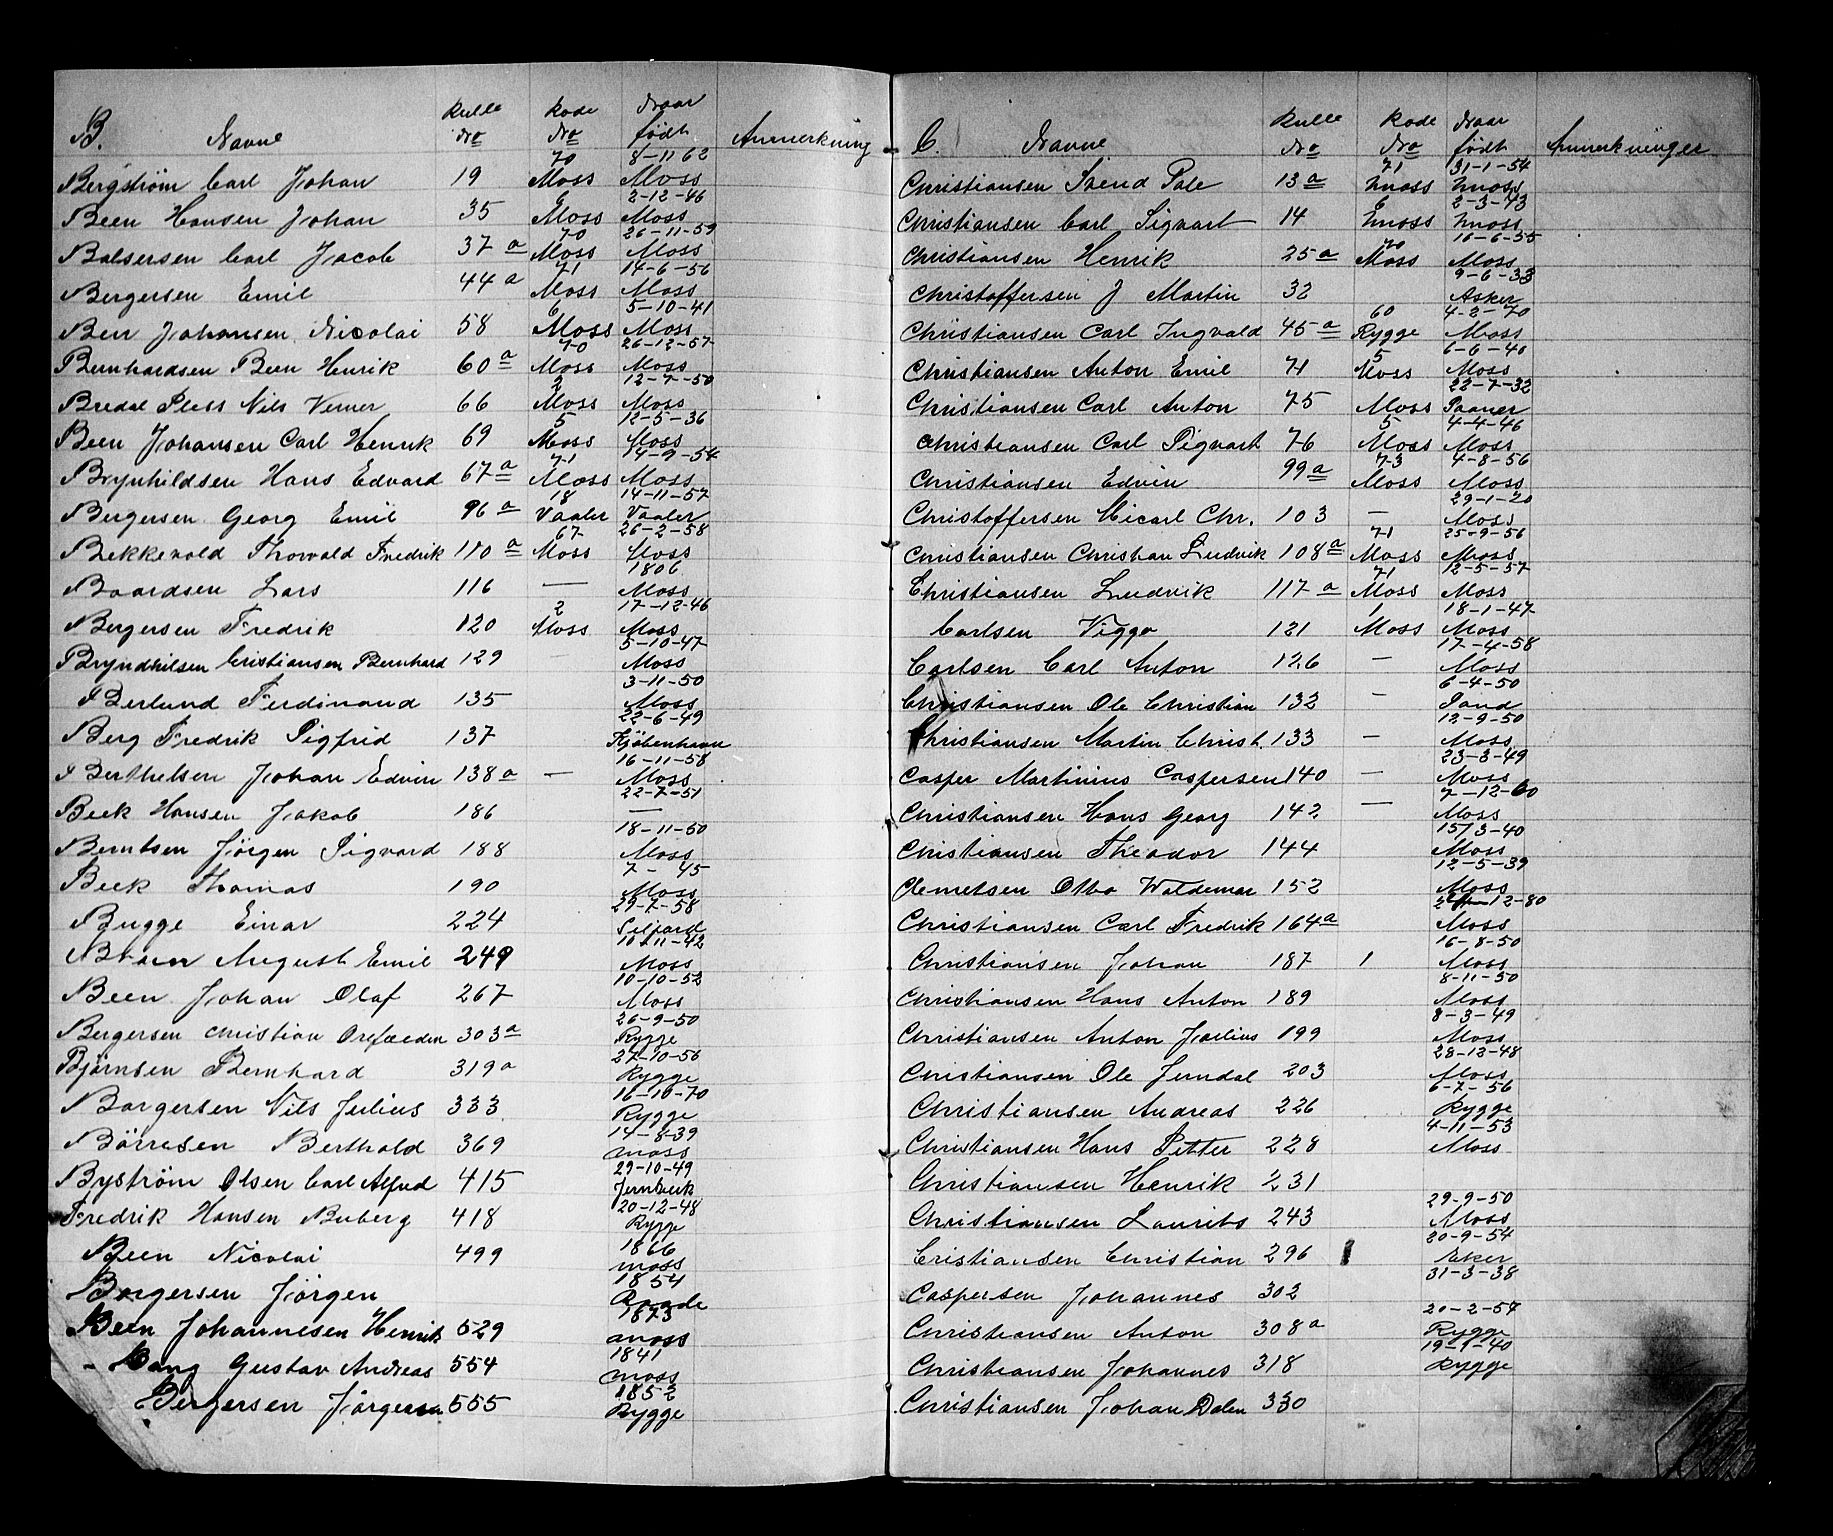 B. Navne Rulle No Rode No Naar født Anmerkning
70 8-11 62
Bergstrøm Carl Johan 19 Moss Moss
6 2-12-46
Been Hansen Johan 35 Moss Moss
70 26-11-59
Balsersen Carl Jacob 37 a Moss Moss
71 14-6-56
Bergersen Emil 44 a Moss Moss
6 5-10-41
Ben Johansen Nicolai 58 Moss Moss
70 26-12-57
Bernhardsen Been Henrik 60 a Moss Moss
2 12-7-50
Bredal Pless Nils Verner 66 Moss Moss
5 12-5-36
Been Johansen Carl Henrik 69 Moss Moss
71 14-9-54
Brynhildsen Hans Edvard 67 a Moss Moss
18 14-11-57
Bergersen Georg Emil 96 a Vaaler Vaaler
67 26-2-58
Bekkevold Thorvald Fredrik 110 a Moss Moss
1806
Baardsen Lars 116 — Moss
2 17-12-46
Bergersen Fredrik 120 Moss Moss
5-10-47
Bryndhilsen Cristiansen Bernhard 129 — Moss
3-11-50
Berlund Ferdinand 135 Moss
22-6-49
Berg Fredrik Sigfrid 137 Kjøbenhavn
16-11-58
Berthelsen Johan Edvin 138 a — Moss
22-7-51
Beck Hansen Jakob 186 —
18-11-50
Berntsen Jörgen Sigvard 188 Moss
7- 45
Beck Thomas 190 Moss
29-7-58
Bugge Einar 224
10-11-42
August Emil 249 Moss
10-10-52
Been Johan Olaf 267 Moss
26-9-50
Bergersen Christian 303 a Rygge
27-10-56
Bjørnsen Bernhard 319 a Rygge
16-10-70
Borgersen Nils Julius 333 Rygge
14-8-39
Börresen Berthold 369 Moss
29-10-49
Byström Olsen Carl Alfred 415
20-12-48
Fredrik Hansen Buberg 418 Rygge
1866
Been Nicolai 499 moss
1854
Borgersen Jörgen Raade
1873
Been Johannesen Henrik 529 moss
1841
Bang Gustav Andreas 554 moss
1852
Bergersen Jörgensen 555 Rygge
C. Navne Rulle No Rode No Naar født Anmerkninger
71 31-1-54
Christiansen Svend Pale 13 a Moss Moss
6 2-3-43
Christiansen Carl Sigvart 14 Moss Moss
70 16-6-55
Christiansen Henrik 25 a Moss Moss
9-6-33
Christoffersen J Martin 32 Asker
60 4-2-70
Christiansen Carl Ingvald 45 a Rygge Moss
5 6-6-40
Christiansen Anton Emil 71 Moss Moss
22-7-32
Christiansen Carl Anton 75 Moss
5 4-4-46
Christiansen Carl Sigvart 76 Moss Moss
73 4-8-56
Christiansen Edvin 99 a Moss Moss
29-1-20
Christoffersen Micael Chr. 103 — Moss
71 25-9-56
Christiansen Christian Ludvik 108 a Moss Moss
71 12-5-57
Christiansen Ludvik 117 a Moss Moss
1 18-1-47
Carlsen Viggo 121 Moss Moss
17-4-58
Carlsen Carl Anton 126 — Moss
6-4-50
Christiansen Ole Christian 132 — Sand
12-9-50
Christiansen Martin Christ. 133 — Moss
23-3-49
Casper Martinius Caspersen 140 — Moss
7-12-60
Christiansen Hans Georg 142 — Moss
15/3-40
Christiansen Theodor 144 Moss
12-5-39
Clemetsen Otto Waldemar 152 Moss
12-80
Christiansen Carl Fredrik 164 a Moss
16-8-50
Christiansen Johan 187 1 Moss
8-11-50
Christiansen Hans Anton 189 Moss
8-3-49
Christiansen Anton Julius 199 Moss
28-12-48
Christiansen Ole Jerndal 203 Moss
6-7-56
Christiansen Andreas 226 Rygge
4-11-53
Christiansen Hans Petter 228 Moss
Christiansen Henrik 231
29-9-50
Christiansen Laurits 243 Moss
20-9-54
Cristiansen Christian 296 Aker
31-3-38
Caspersen Johannes 302
20-2-57
Christiansen Anton 308 a Rygge
19-9-40
Christiansen Johannes 318 Rygge
Christiansen Johan Dalen 330